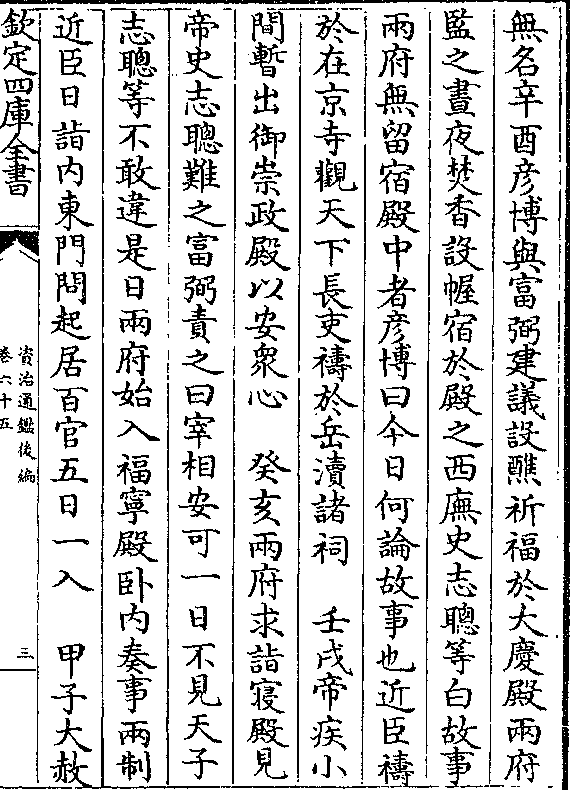 無名辛酉彦博與富弼建議設醮祈福於大慶殿兩府
監之晝夜焚香設幄宿於殿之西廡史志聰等白故事
兩府無留宿殿中者彦博曰今日何論故事也近臣禱
於在京寺觀天下長吏禱於岳瀆諸祠　壬戌帝疾小
間暫出御崇政殿以安衆心　癸亥兩府求詣寢殿見
帝史志聰難之富弼責之曰宰相安可一日不見天子
志聰等不敢違是日兩府始入福寧殿卧内奏事兩制
近臣日詣内東門問起居百官五日一入　甲子大赦
欽定四庫全書
資治通鑑後編
卷六十五
三